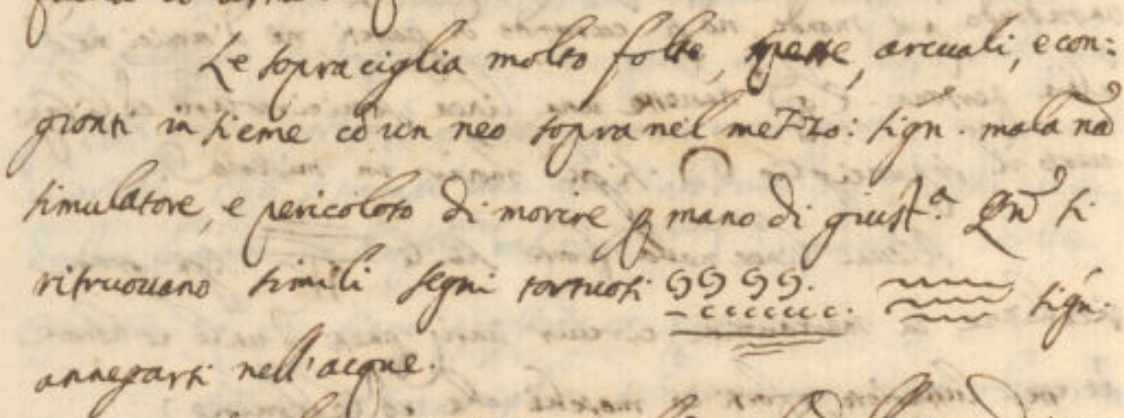 Le sopraciglia molto folte, spesse, arcuali, e con:
gionti insieme cō un neo sopra nel mezzo: sign. mala nā
simulatore, e pericoloso di morire ꝑ mano di giust.ª Qn̄ si
ritruouano simili segni tortuosi SS SS. sign.
annegarsi nell'acque.